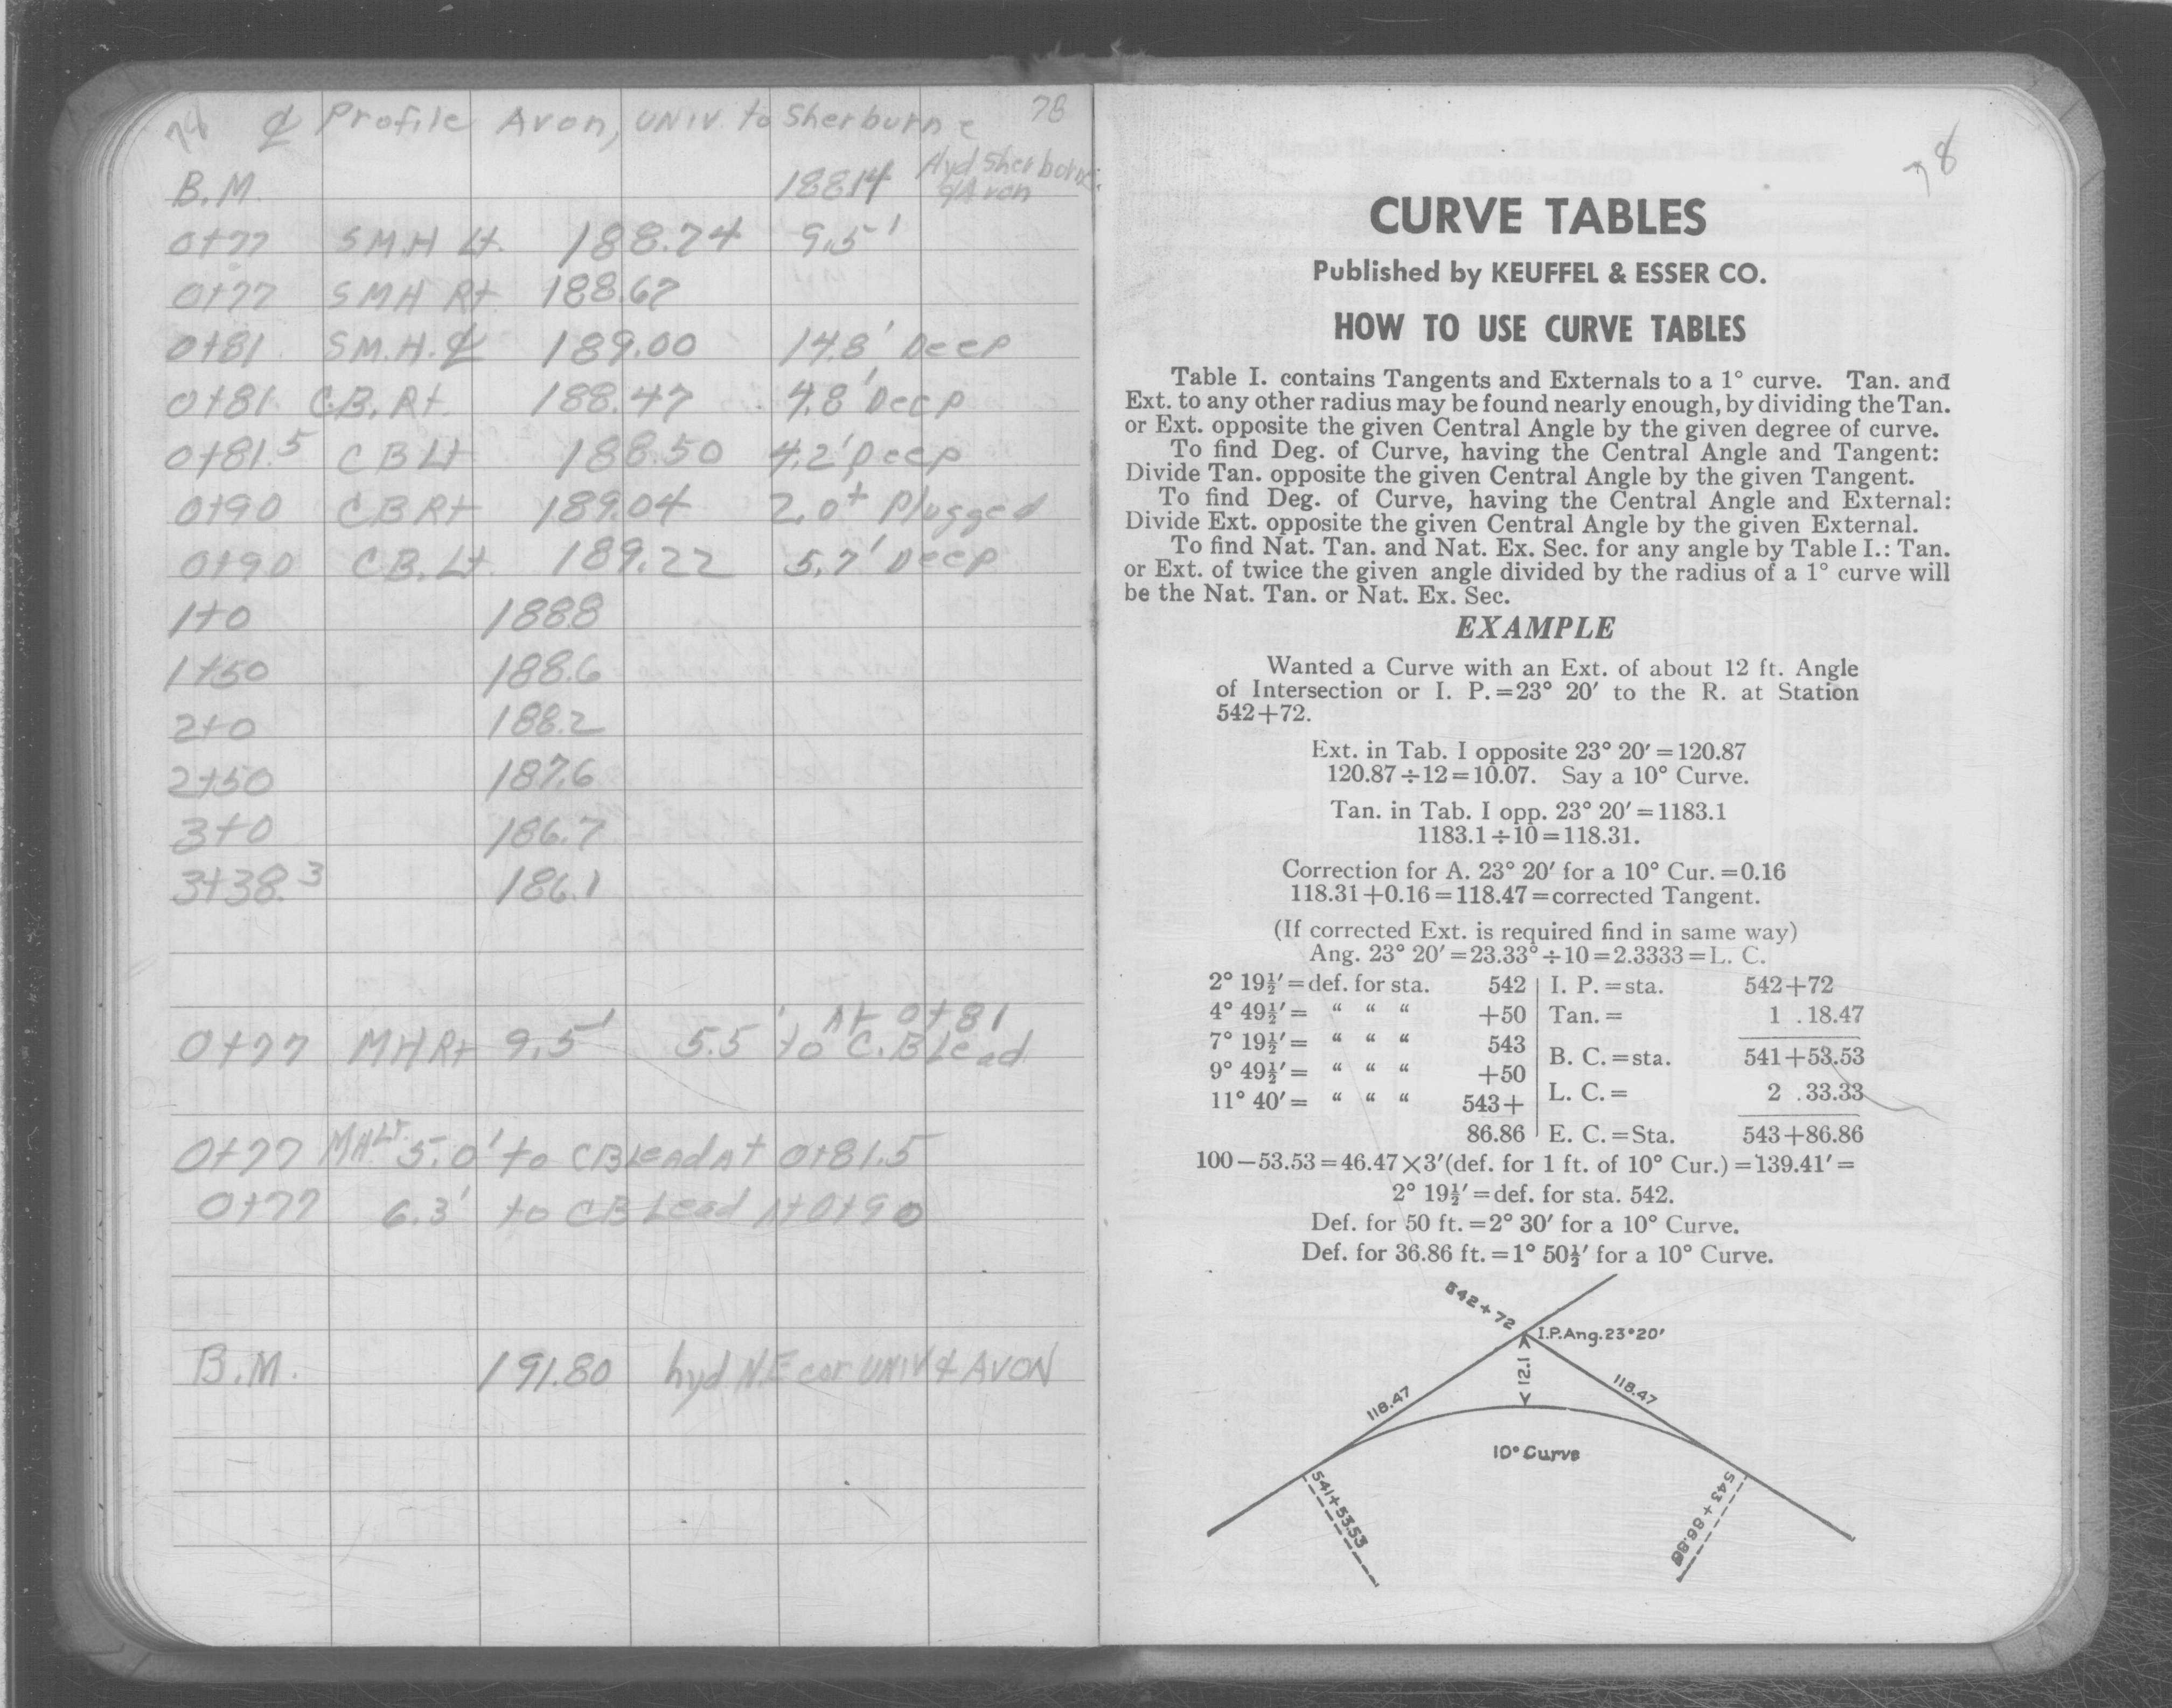 78
℄ Profile Avon, UNIV. to Sherburne
B.M. 188.14 Hyd Sherborne
& Avon
0+77 S.M.H Lt. 188.74 9.5'
0+77 SMH Rt. 188.67
0+81 S.M.H. ℄ 189.00 14.8' Deep
0+81 C.B. Rt 188.47 4.8' Deep
0+81.5 CB Lt 188.50 4.2' Deep
0+90 CB Rt 189.04 2.0+ Plugged
0+90 CB. Lt 189.22 5.7' Deep
1+0 188.8
1+50 188.6
2+0 188.2
2+50 187.6
3+0 186.7
3+38.3 186.1
At 0+81
0+77 MH Rt 9.5' 5.5' to C.B Lead
0+77 MH Lt. 5.0' to CB Lead At 0+81.5
0+77 6.3' to CB Lead At 0+90
B.M. 191.80 hyd N.E cor UNIV & AVON
78
CURVE TABLES
Published by KEUFFEL & ESSER CO.
HOW TO USE CURVE TABLES
Table I. contains Tangents and Externals to a 1° curve. Tan. and
Ext. to any other radius may be found nearly enough, by dividing the Tan.
or Ext. opposite the given Central Angle by the given degree of curve.
To find Deg. of Curve, having the Central Angle and Tangent:
Divide Tan. opposite the given Central Angle by the given Tangent.
To find Deg. of Curve, having the Central Angle and External:
Divide Ext. opposite the given Central Angle by the given External.
To find Nat. Tan. and Nat. Ex. Sec. for any angle by Table I.: Tan.
or Ext. of twice the given angle divided by the radius of a 1° curve will
be the Nat. Tan. or Nat. Ex. Sec.
EXAMPLE
Wanted a Curve with an Ext. of about 12 ft. Angle
of Intersection or I. P.=23° 20′ to the R. at Station
542+72.
Ext. in Tab. I opposite 23° 20′=120.87
120.87÷12=10.07. Say a 10° Curve.
Tan. in Tab. I opp. 23° 20′=1183.1
1183.1÷10=118.31.
Correction for A. 23° 20′ for a 10° Cur.=0.16
118.31+0.16=118.47=corrected Tangent.
(If corrected Ext. is required find in same way)
Ang. 23° 20′=23.33°÷10=2.3333=L. C.
2° 19½′=def. for sta. 542 I. P.=sta. 542+72
4° 49½′= “ “ “ +50 Tan.= 1 .18.47
7° 19½′= “ “ “ 543 B. C.=sta. 541+53.53
9° 49½′= “ “ “ +50 L. C.= 2 .33.33
11° 40′= “ “ “ 543+
86.86 E. C.=Sta. 543+86.86
100−53.53=46.47×3′(def. for 1 ft. of 10° Cur.)=139.41′=
2° 19½′=def. for sta. 542.
Def. for 50 ft.=2° 30′ for a 10° Curve.
Def. for 36.86 ft.=1° 50½′ for a 10° Curve.
542+72
I.P.Ang.23°20′
12.1
118.47
118.47
10° Curve
541+53.53
543+86.86